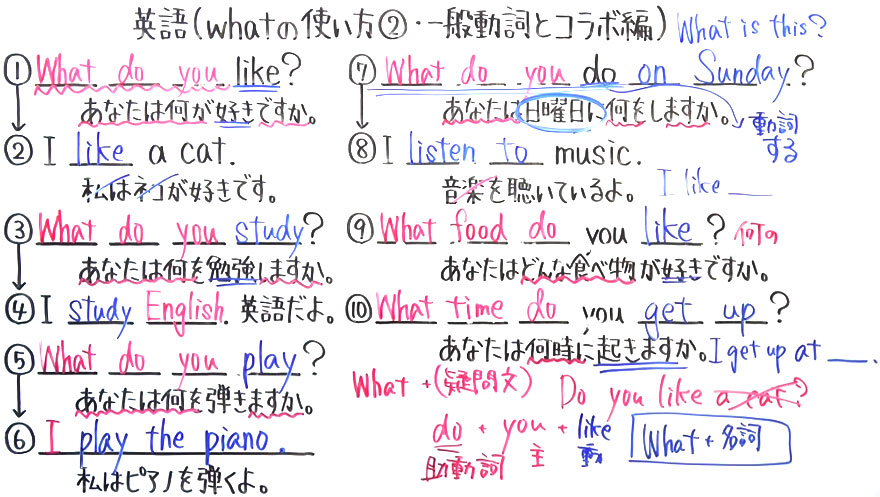 英語(whatの使い方②・一般動詞とコラボ編) What is this?
① What do you like?
あなたは何が好きですか。
② I like a cat.
私はネコが好きです。
③ What do you study?
あなたは何を勉強しますか。
④ I study English. 英語だよ。
⑤ What do you play?
あなたは何を弾きますか。
⑥ I play the piano.
私はピアノを弾くよ。
⑦ What do you do on Sunday?
あなたは日曜日に何をしますか。
動詞
する
⑧ I listen to music.
音楽を聴いているよ。 I like
⑨ What food do you like? 何の
あなたはどんな食べ物が好きですか。
⑩ What time do you get up?
あなたは何時に起きますか。I get up at .
What +(疑問文) Do you like a cat?
do + you + like
助動詞 主 動
What+名詞